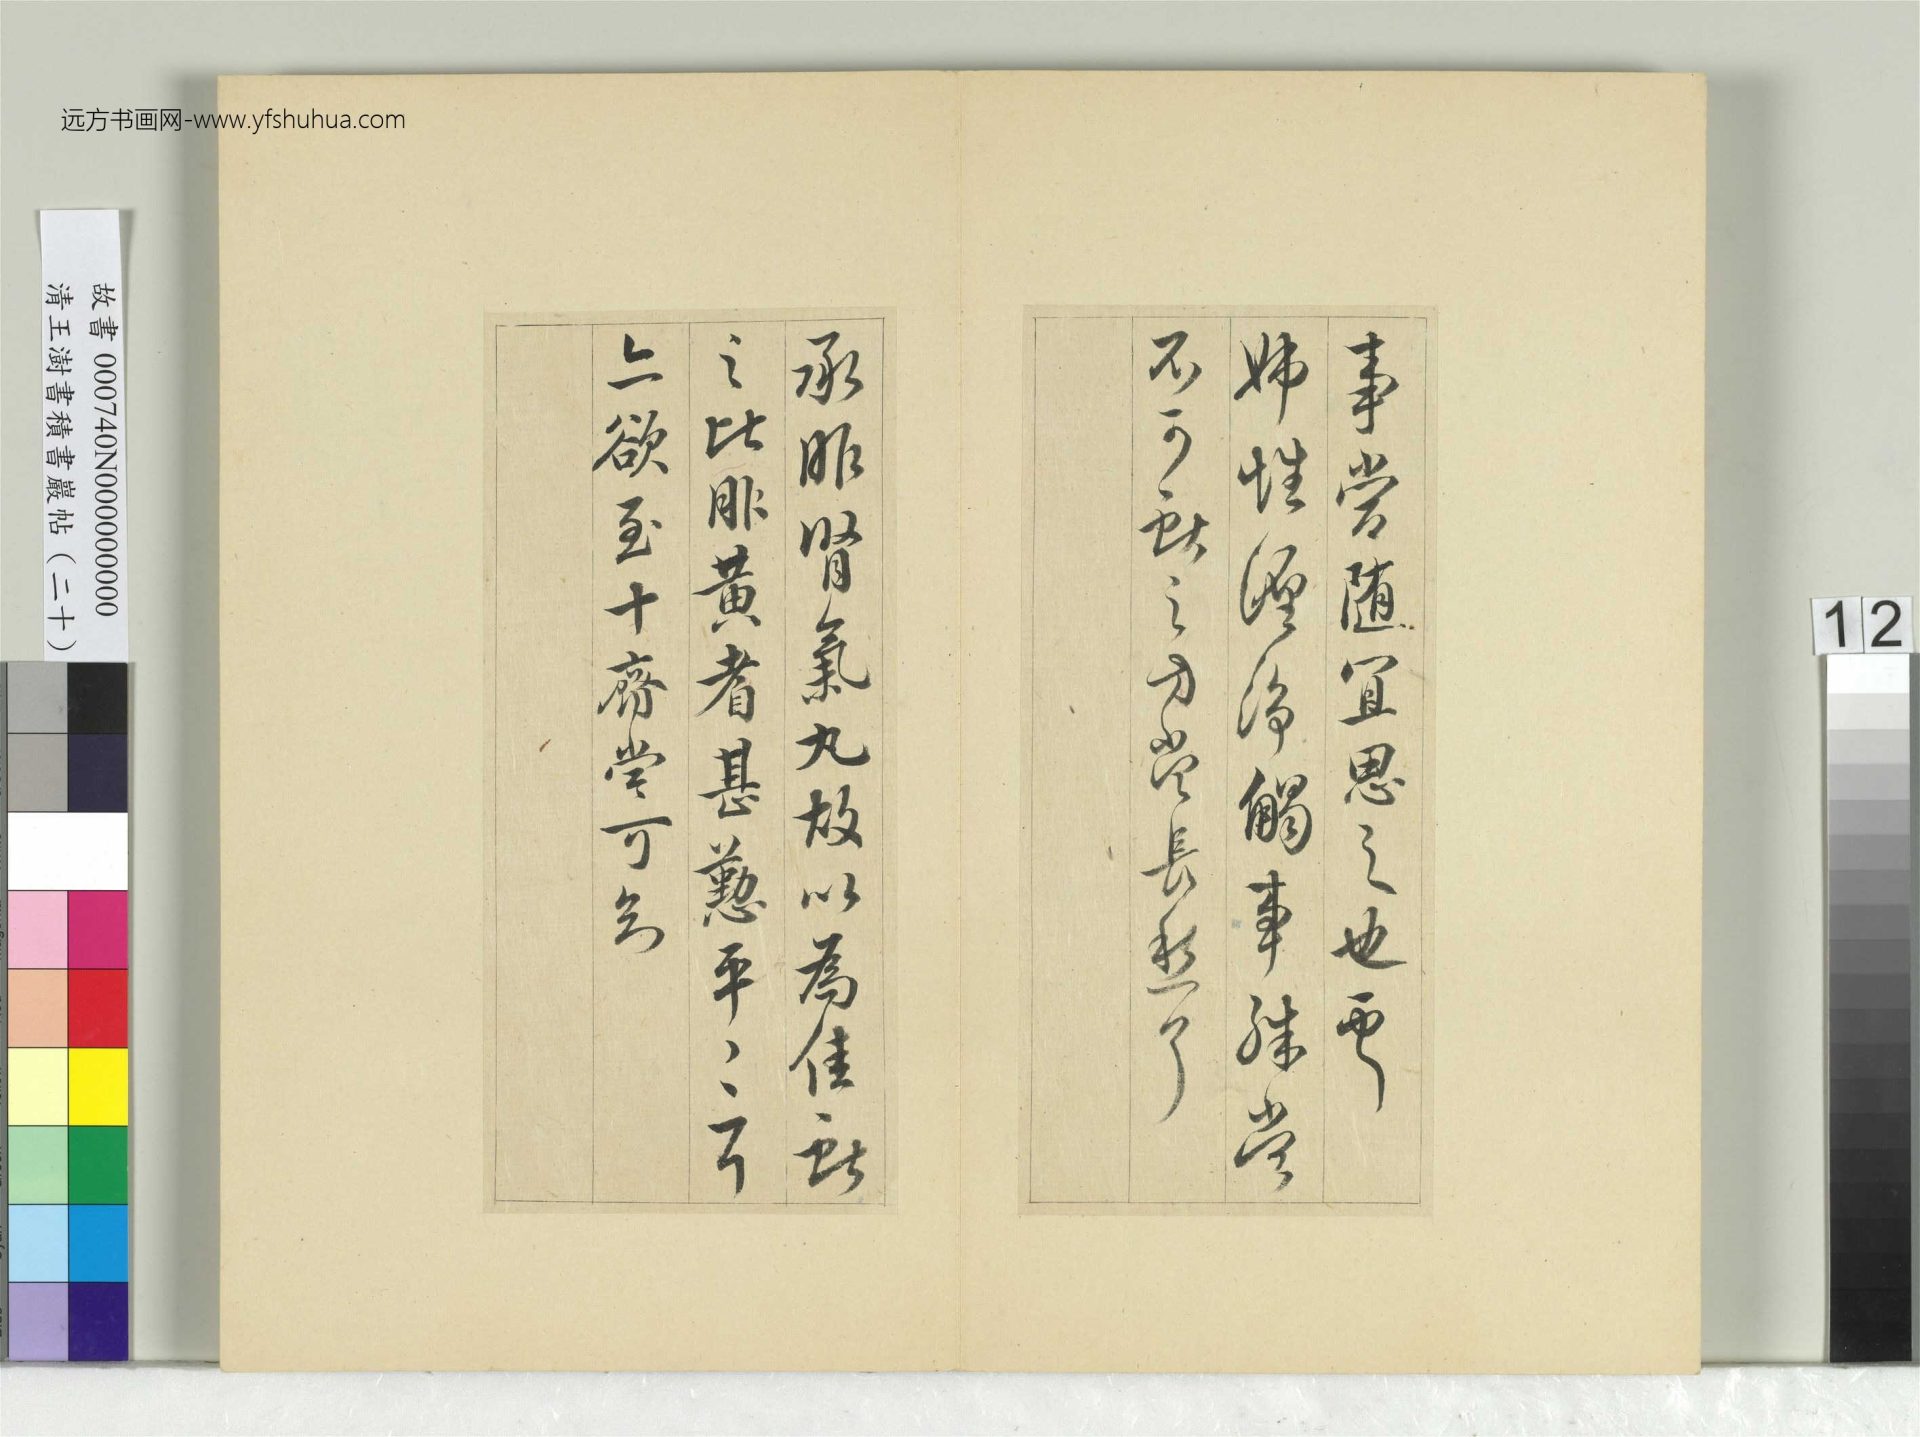 远方书画网-www.yfshuhua.com
事當隨宜思之也
姊性纏綿觸事殊當
不可獻之方當長愁耳
承服腎氣丸故以為佳獻
之比服黃耆甚懃平〻耳
亦欲至十齊當可知
故書 000740N000000000
清王澍書積書巖帖（二十）
12